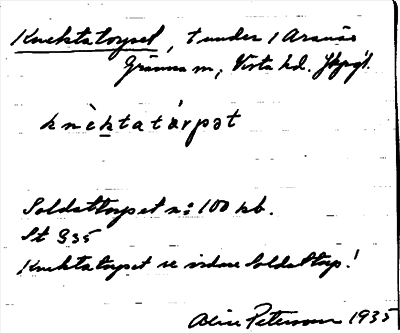 Knektatorpet, t under 1 Aranäs
Gränna sn, Vista hd. Jkpgl.
knèktatárpət
Soldattorpet n:o 100 kb.
St 935
Knektatorpet se vidare Soldattorp!
Alice Petersson 1935